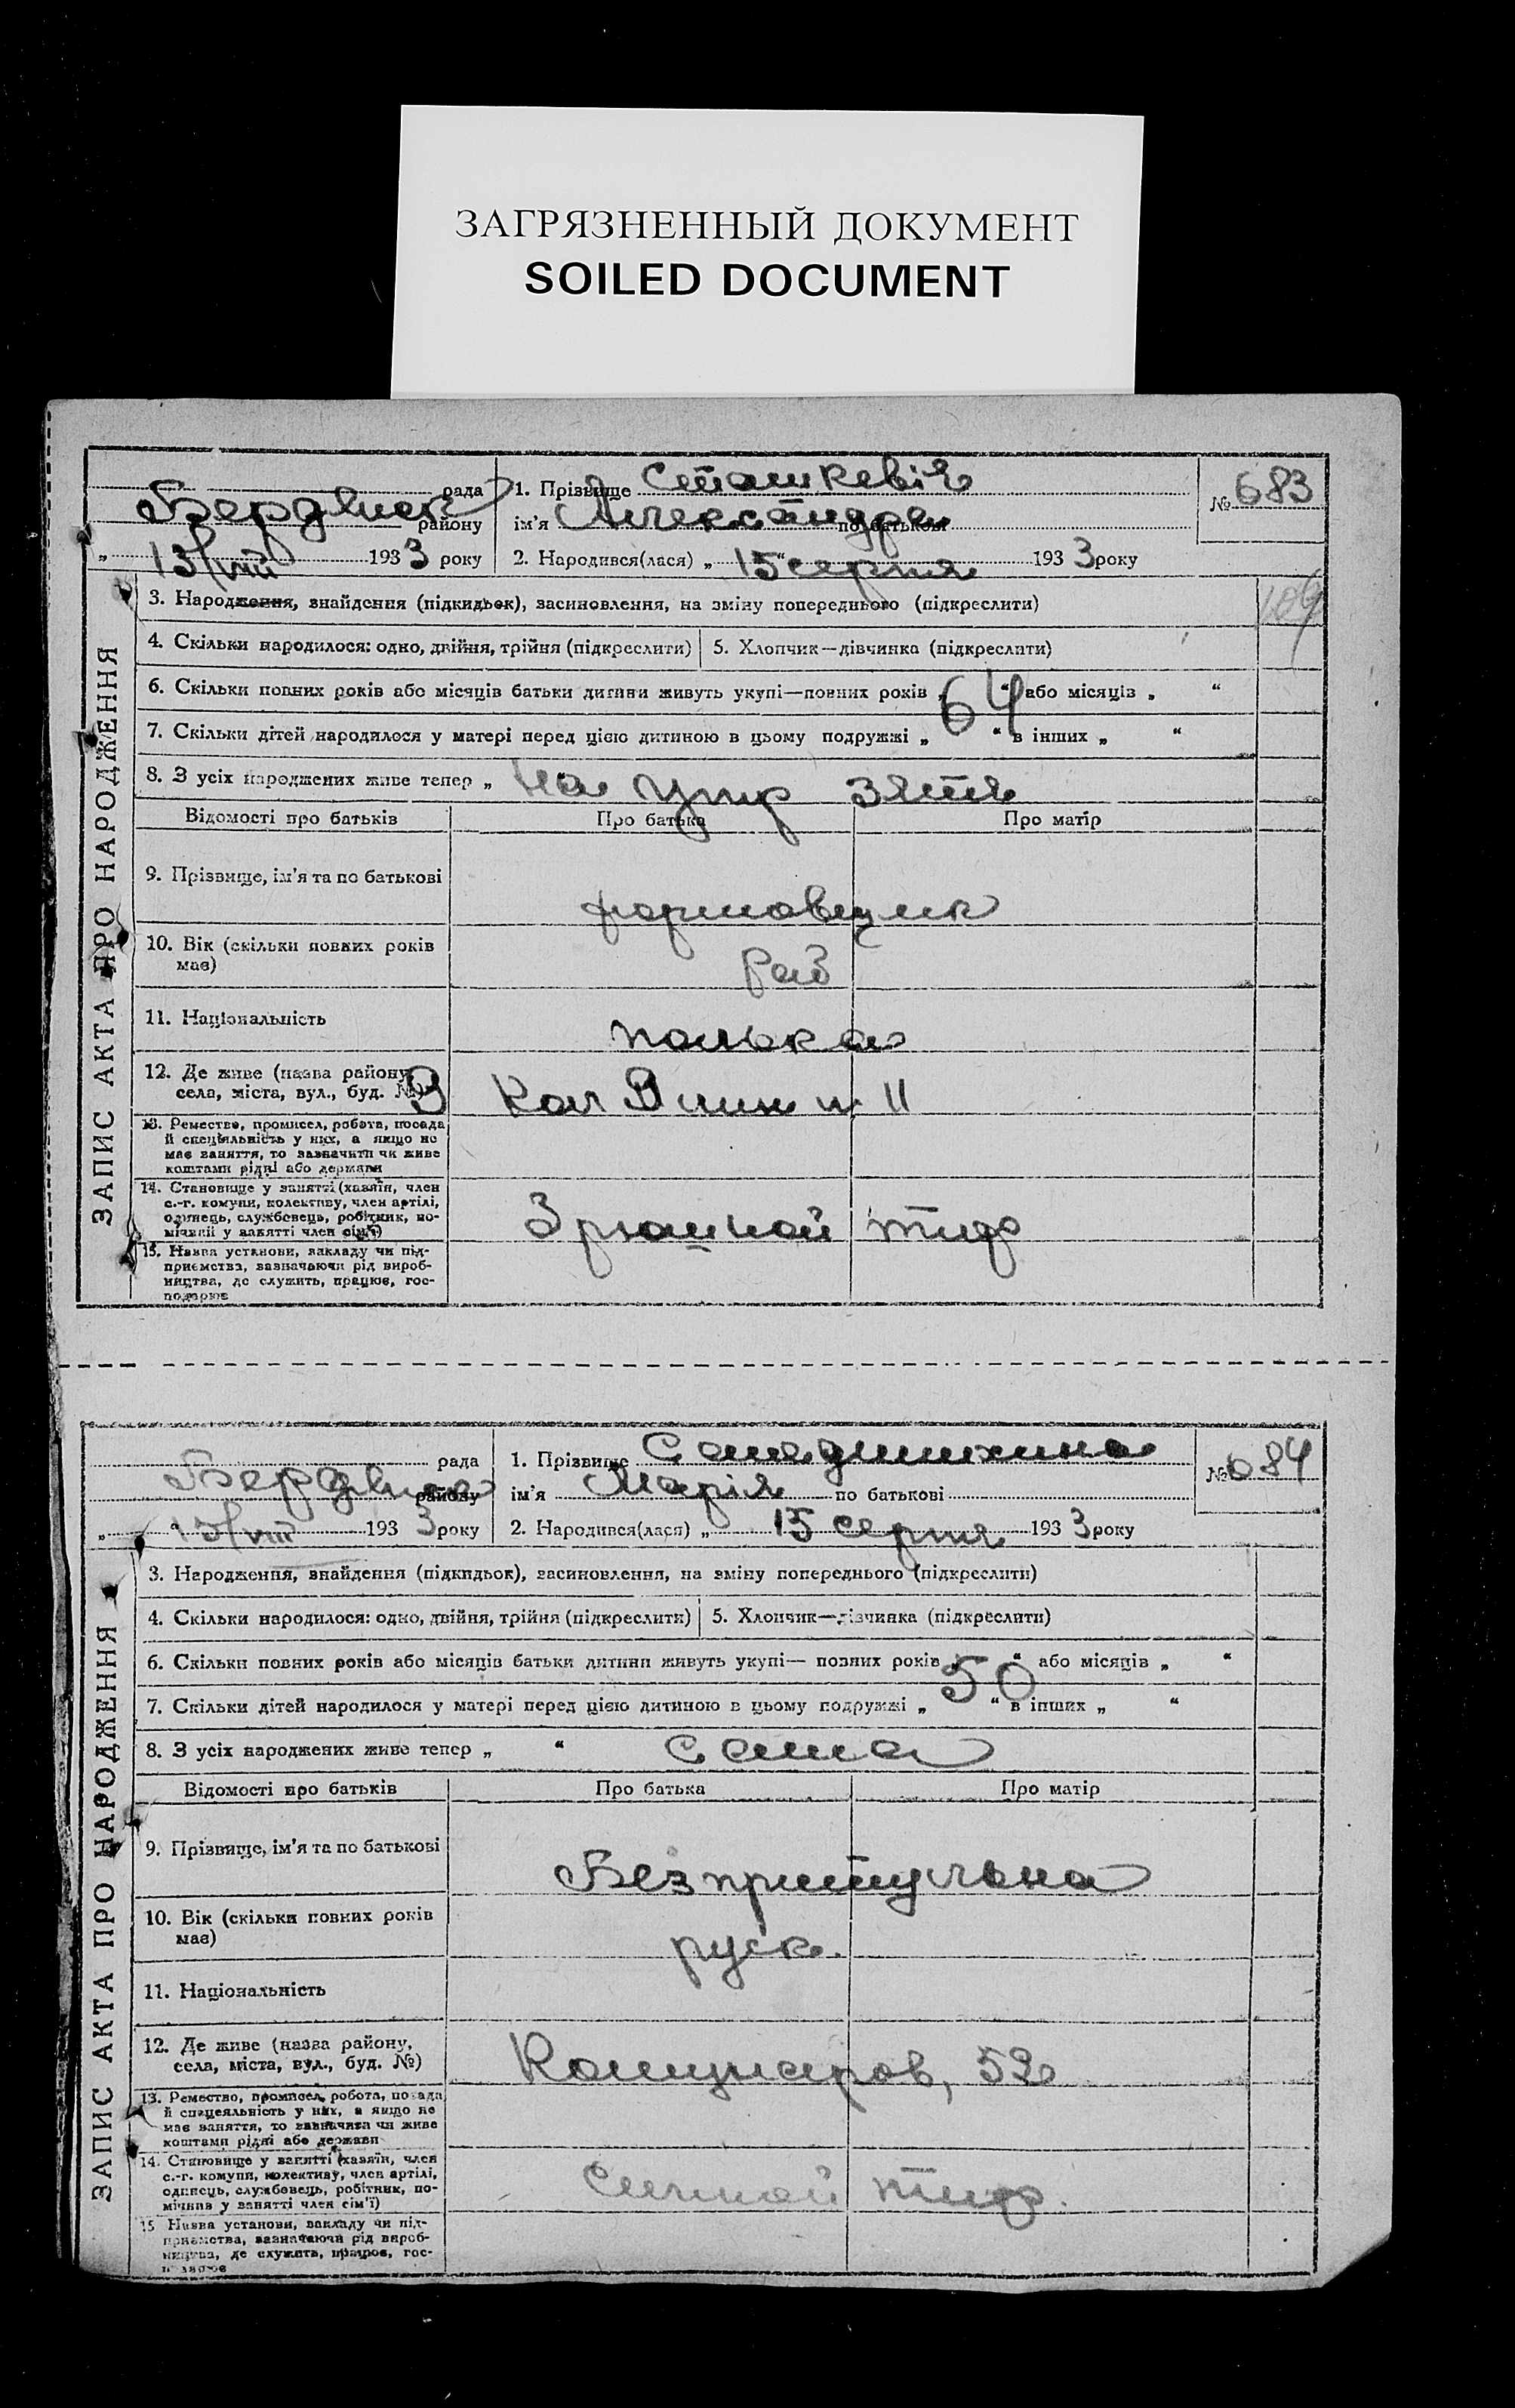 ЗАГРЯЗНЕННЫЙ ДОКУМЕНТ
SOILED DOCUMENT
ЗАПИС АКТА ПРО НАРОДЖЕННЯ
рада
Бердянськ
району
„ 15/VIII 1933 року
1. Прізвище Сташкевія
ім'я Александра по батькові
2. Народився(лася) „ 15 серпня 1933 року
№ 683
109
3. Народження, знайдення (підкидьок), засиновлення, на зміну попереднього (підкреслити)
4. Скільки народилося: одно, двійня, трійня (підкреслити)
5. Хлопчик—дівчинка (підкреслити)
6. Скільки повних років або місяців батьки дитини живуть укупі—повних років „ “ або місяців „ “
64
7. Скільки дітей народилося у матері перед цією дитиною в цьому подружжі „ “ в інших „ “
8. З усіх народжених живе тепер „ на утр зятя
Відомості про батьків
Про батька
Про матір
9. Прізвище, ім'я та по батькові
формовщик
10. Вік (скільки повних років має)
раб
11. Національність
полька
12. Де живе (назва району, села, міста, вул., буд. №)
11
13. Ремество, промисел, робота, посада
й спеціяльність у них, а якщо не
має заняття, то зазначити чи живе
коштами рідні або держави
14. Становище у занятті (хазяїн, член
с.-г. комуни, колективу, член артілі,
одинець, службовець, робітник, по-
мічний у занятті член сім'ї)
тиф
15. Назва установи, закладу чи під-
приємства, зазначаючи рід вироб-
ництва, де служить, працює, гос-
подарює
ЗАПИС АКТА ПРО НАРОДЖЕННЯ
рада
Бердянс
району
„ 15/VIII 1933 року
1. Прізвище
ім'я Марія по батькові
2. Народився(лася) „ 15 серпня 1933 року
№ 684
3. Народження, знайдення (підкидьок), засиновлення, на зміну попереднього (підкреслити)
4. Скільки народилося: одно, двійня, трійня (підкреслити)
5. Хлопчик—дівчинка (підкреслити)
6. Скільки повних років або місяців батьки дитини живуть укупі— повних років „ “ або місяців „ “
50
7. Скільки дітей народилося у матері перед цією дитиною в цьому подружжі „ “ в інших „ “
8. З усіх народжених живе тепер „ “ сама
Відомості про батьків
Про батька
Про матір
9. Прізвище, ім'я та по батькові
Безпритульна
10. Вік (скільки повних років має)
руск.
11. Національність
12. Де живе (назва району, села, міста, вул., буд. №)
Комунаров, 52
13. Ремество, промисел, робота, посада
й спеціяльність у них, а якщо не
має заняття, то зазначити чи живе
коштами рідні або держави
14. Становище у занятті (хазяїн, член
с.-г. комуни, колективу, член артілі,
одинець, службовець, робітник, по-
мічний у занятті член сім'ї)
Сипной тиф.
15 Назва установи, закладу чи під-
приємства, зазначаючи рід вироб-
ництва, де служить, працює, гос-
подарює